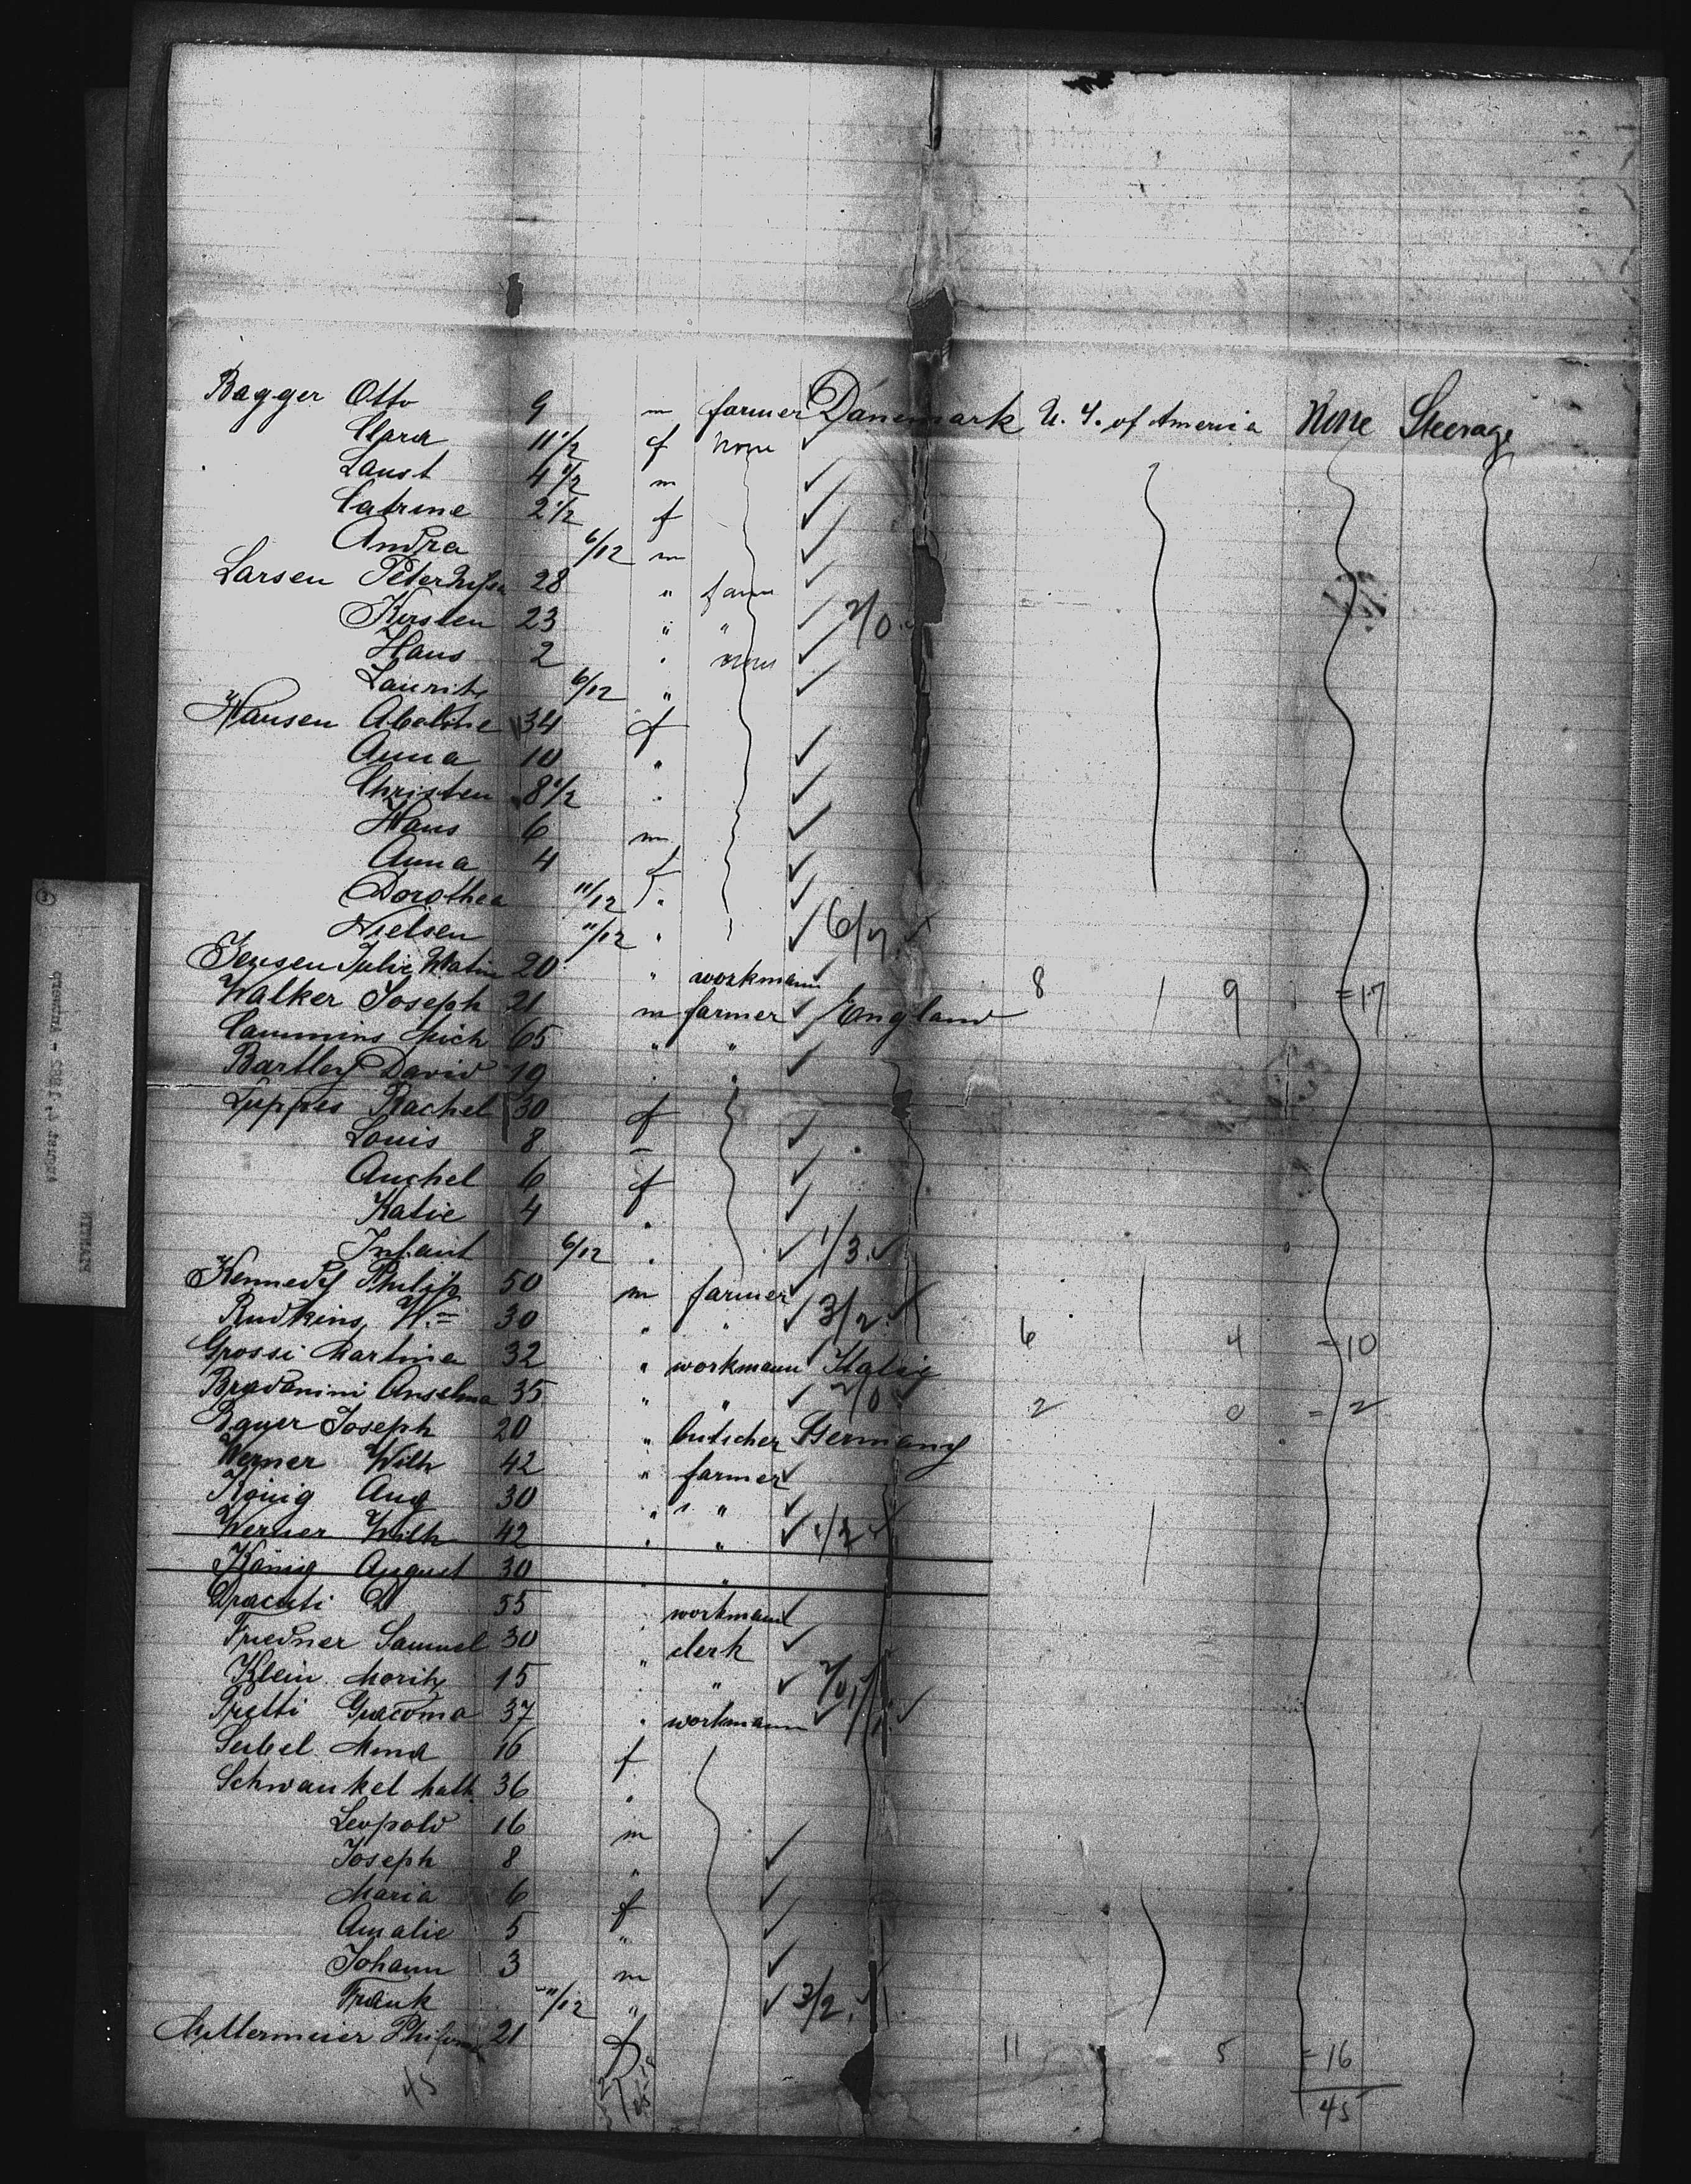 Bagger Otto 9 m farmer Danemark U. S. of America None Steerage
Clara 11 1/2 f none
Laust 4 1/2 m
Catrine 2 1/2 f
Andra 6/12 m
Larsen Peter 28 " farm
Kirsten 23 " " 2/0
Hans 2 " none
Lauritz 6/12 "
Hansen Abeline 34 f
Anna 10 "
Christen 8 1/2 "
Hans 6 m
Anna 4 f
Dorothea 11/12 "
Nielsen 11/12 " 6/7
Jensen Julie 20 " workmann 8 9 =17
Walker Joseph 21 m farmer England
Cammins Mich 65 " "
Bartley David 19 " "
Luppes Rachel 30 f
Louis 8
Auchel 6 f
Katie 4 "
Infant 6/12 " 1/3
Kennedy Philip 50 m farmer
Rudkins, Wm 30 " " 3/2 6 4 =10
Grossi Martina 32 " workmann Italy
Bradanini Anselma 35 " " 2/0 2 0 = 2
Bauer Joseph 20 " butcher Germany
Werner Wilh 42 " farmer
König Aug 30 " "
Werner Wilh 42 " " 1/2
König August 30 " "
D 35 workmann
Friedner Samuel 30 " clerk
Klein Moritz 15 " " 2/0
Pretti Giacoma 37 " workmann
Seibel Mina 16 f
Schwankel Math 36 "
Leopold 16 m
Joseph 8 "
Maria 6 f
Amalie 5 "
Johann 3 m
Frank 11/12 " 3/2
21 f 11 5 =16
45 45
August 4, 1882 - Germany